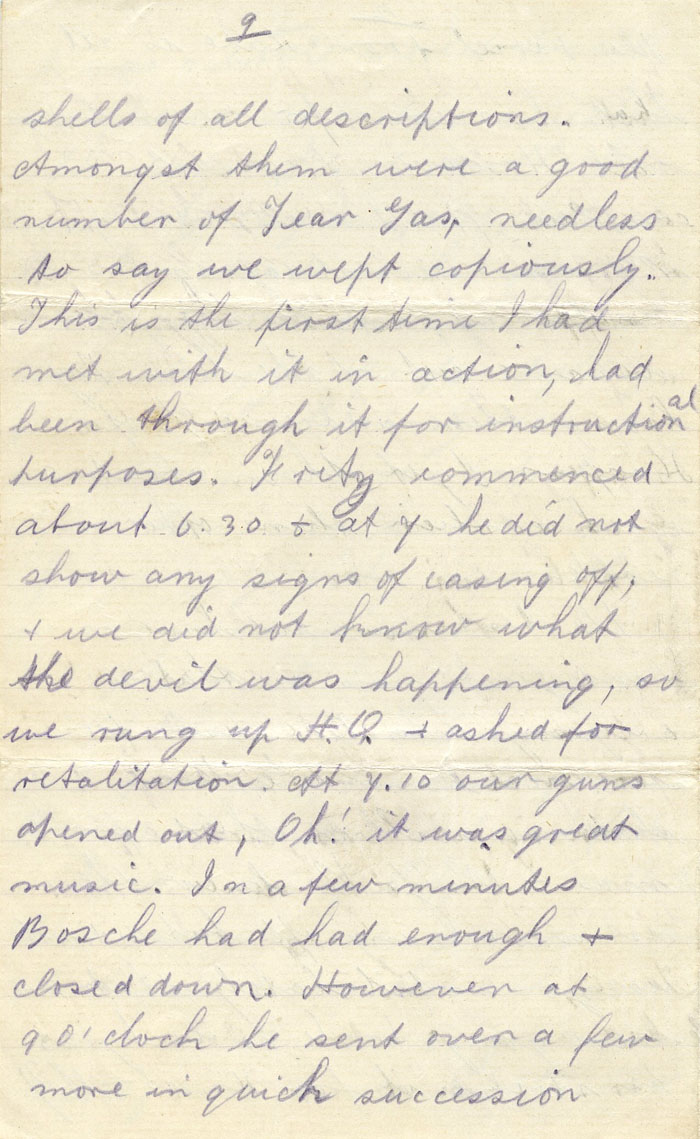 9
shells of all descriptions.
Amongst them were a good
number of Tear Gas, needless
to say we wept copiously.
This is the first time I had
met with it in action, had
been through it for instructional
purposes. Fritz commenced
about 6.30 & at 7 he did not
show any signs of easing off,
& we did not know what
the devil was happening, so
we rung up H.Q. & asked for
retalitation. At 7.10 our guns
opened out, Oh! it was great
music. In a few minutes
Bosche had had enough &
closed down. However at
9 O'clock he sent over a few
more in quick succession